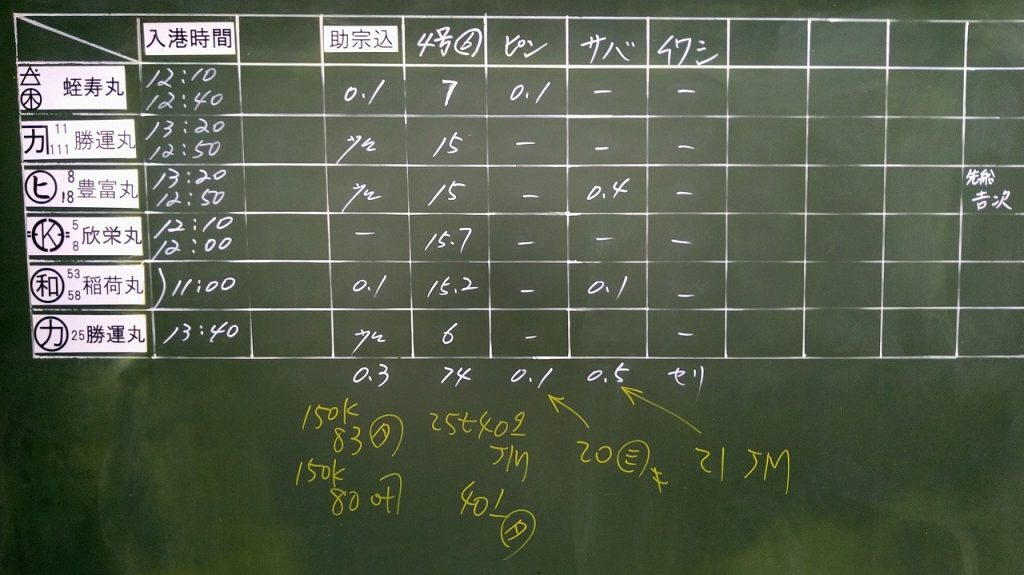 入港時間 助宗込 4号 ピン サバ イワシ
蛭寿丸 12:10 12:40 0.1 7 0.1 － －
カ 11 111 勝運丸 13:20 12:50 少々 15 － － －
ヒ 8 18 豊富丸 13:20 12:50 少々 15 － 0.4 － 先船 吉次
K 5 8 欣栄丸 12:10 12:00 － 15.7 － － －
和 53 58 稲荷丸 )11:00 0.1 15.2 － 0.1 －
カ 25 勝運丸 13:40 少々 6 － －
0.3 74 0.1 0.5 セリ
150K 25t402
83 JM 20 21 JM
150K
80 401